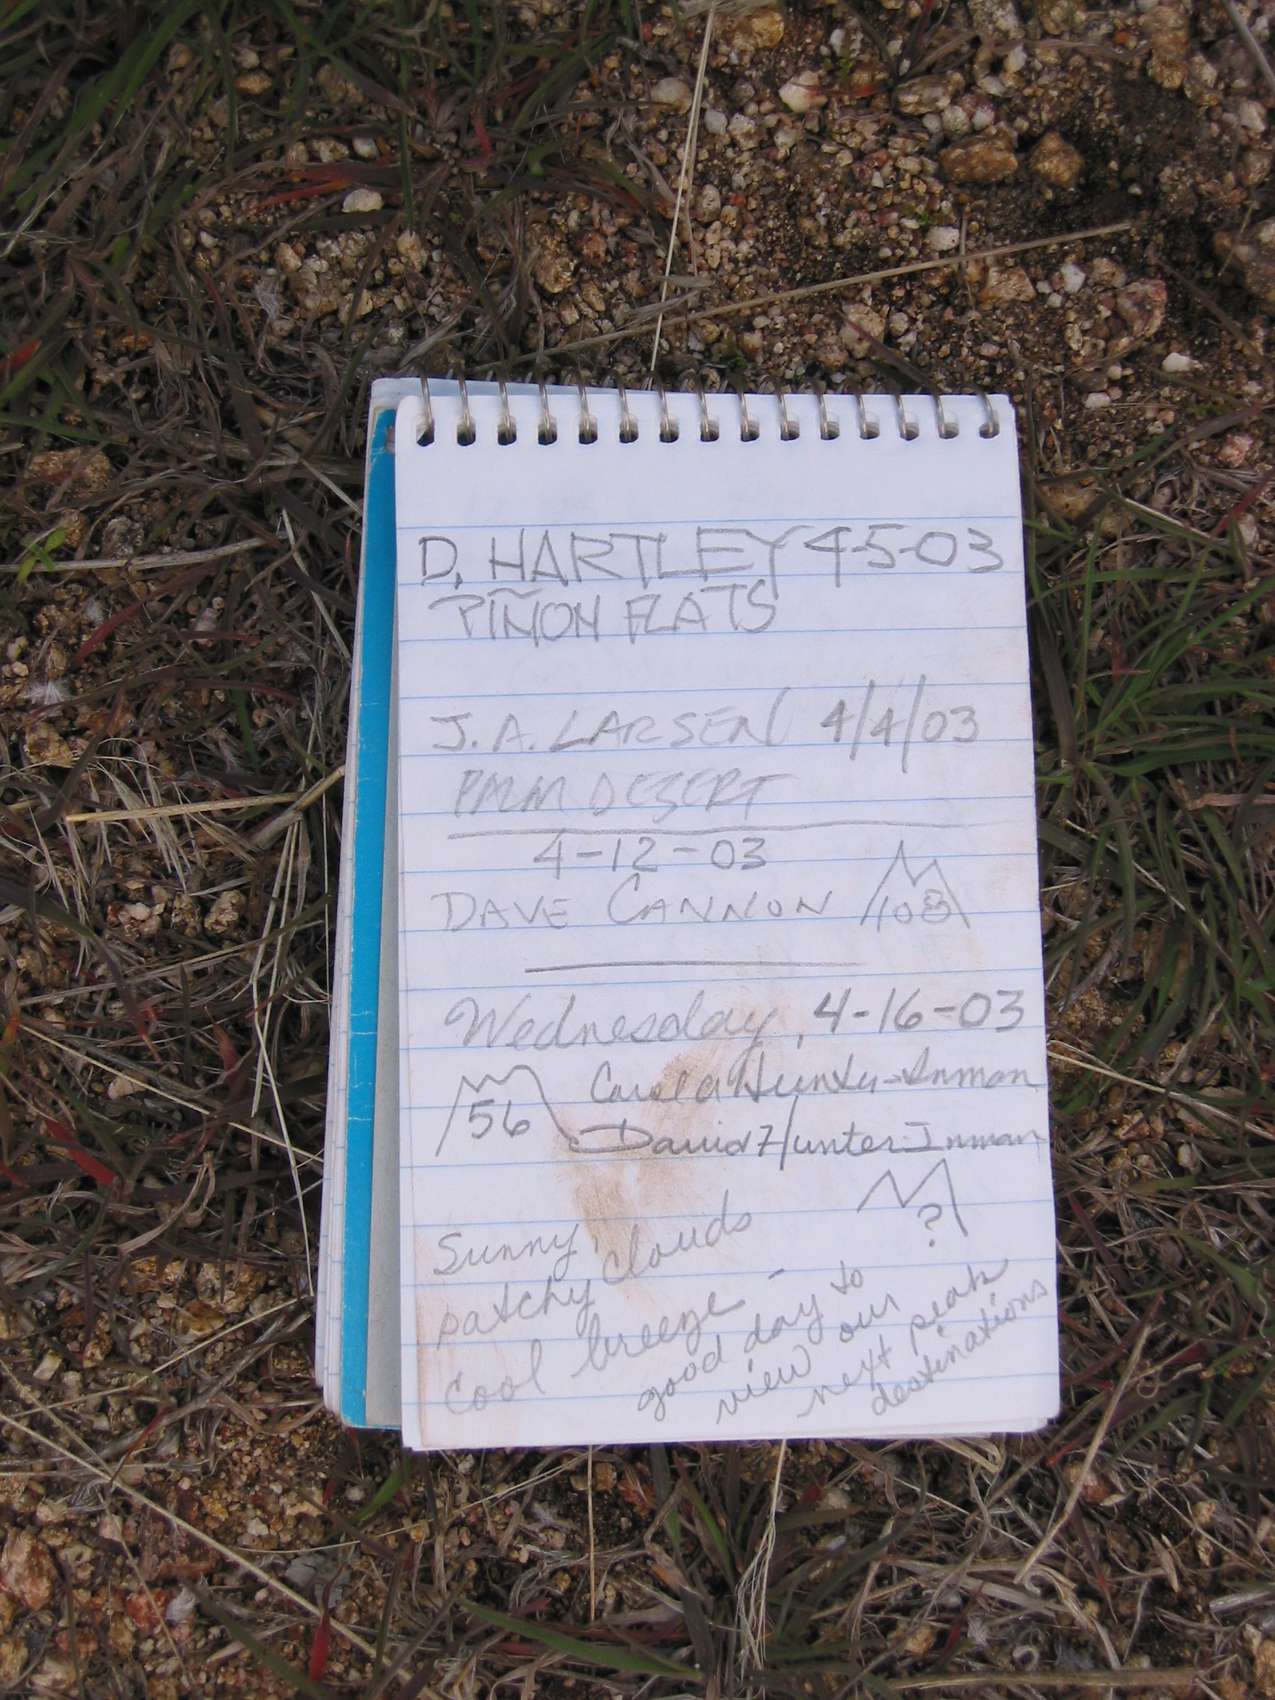 D. HARTLEY 4-5-03
PIÑON FLATS
J. A. LARSEN 4/4/03
PALM DESERT
4-12-03
DAVE CANNON 108
Wednesday, 4-16-03
56 Carola Hunter-Inman
David Hunter Inman
?
Sunny,
patchy clouds
cool breeze -
good day to
view our
next peak
destinations